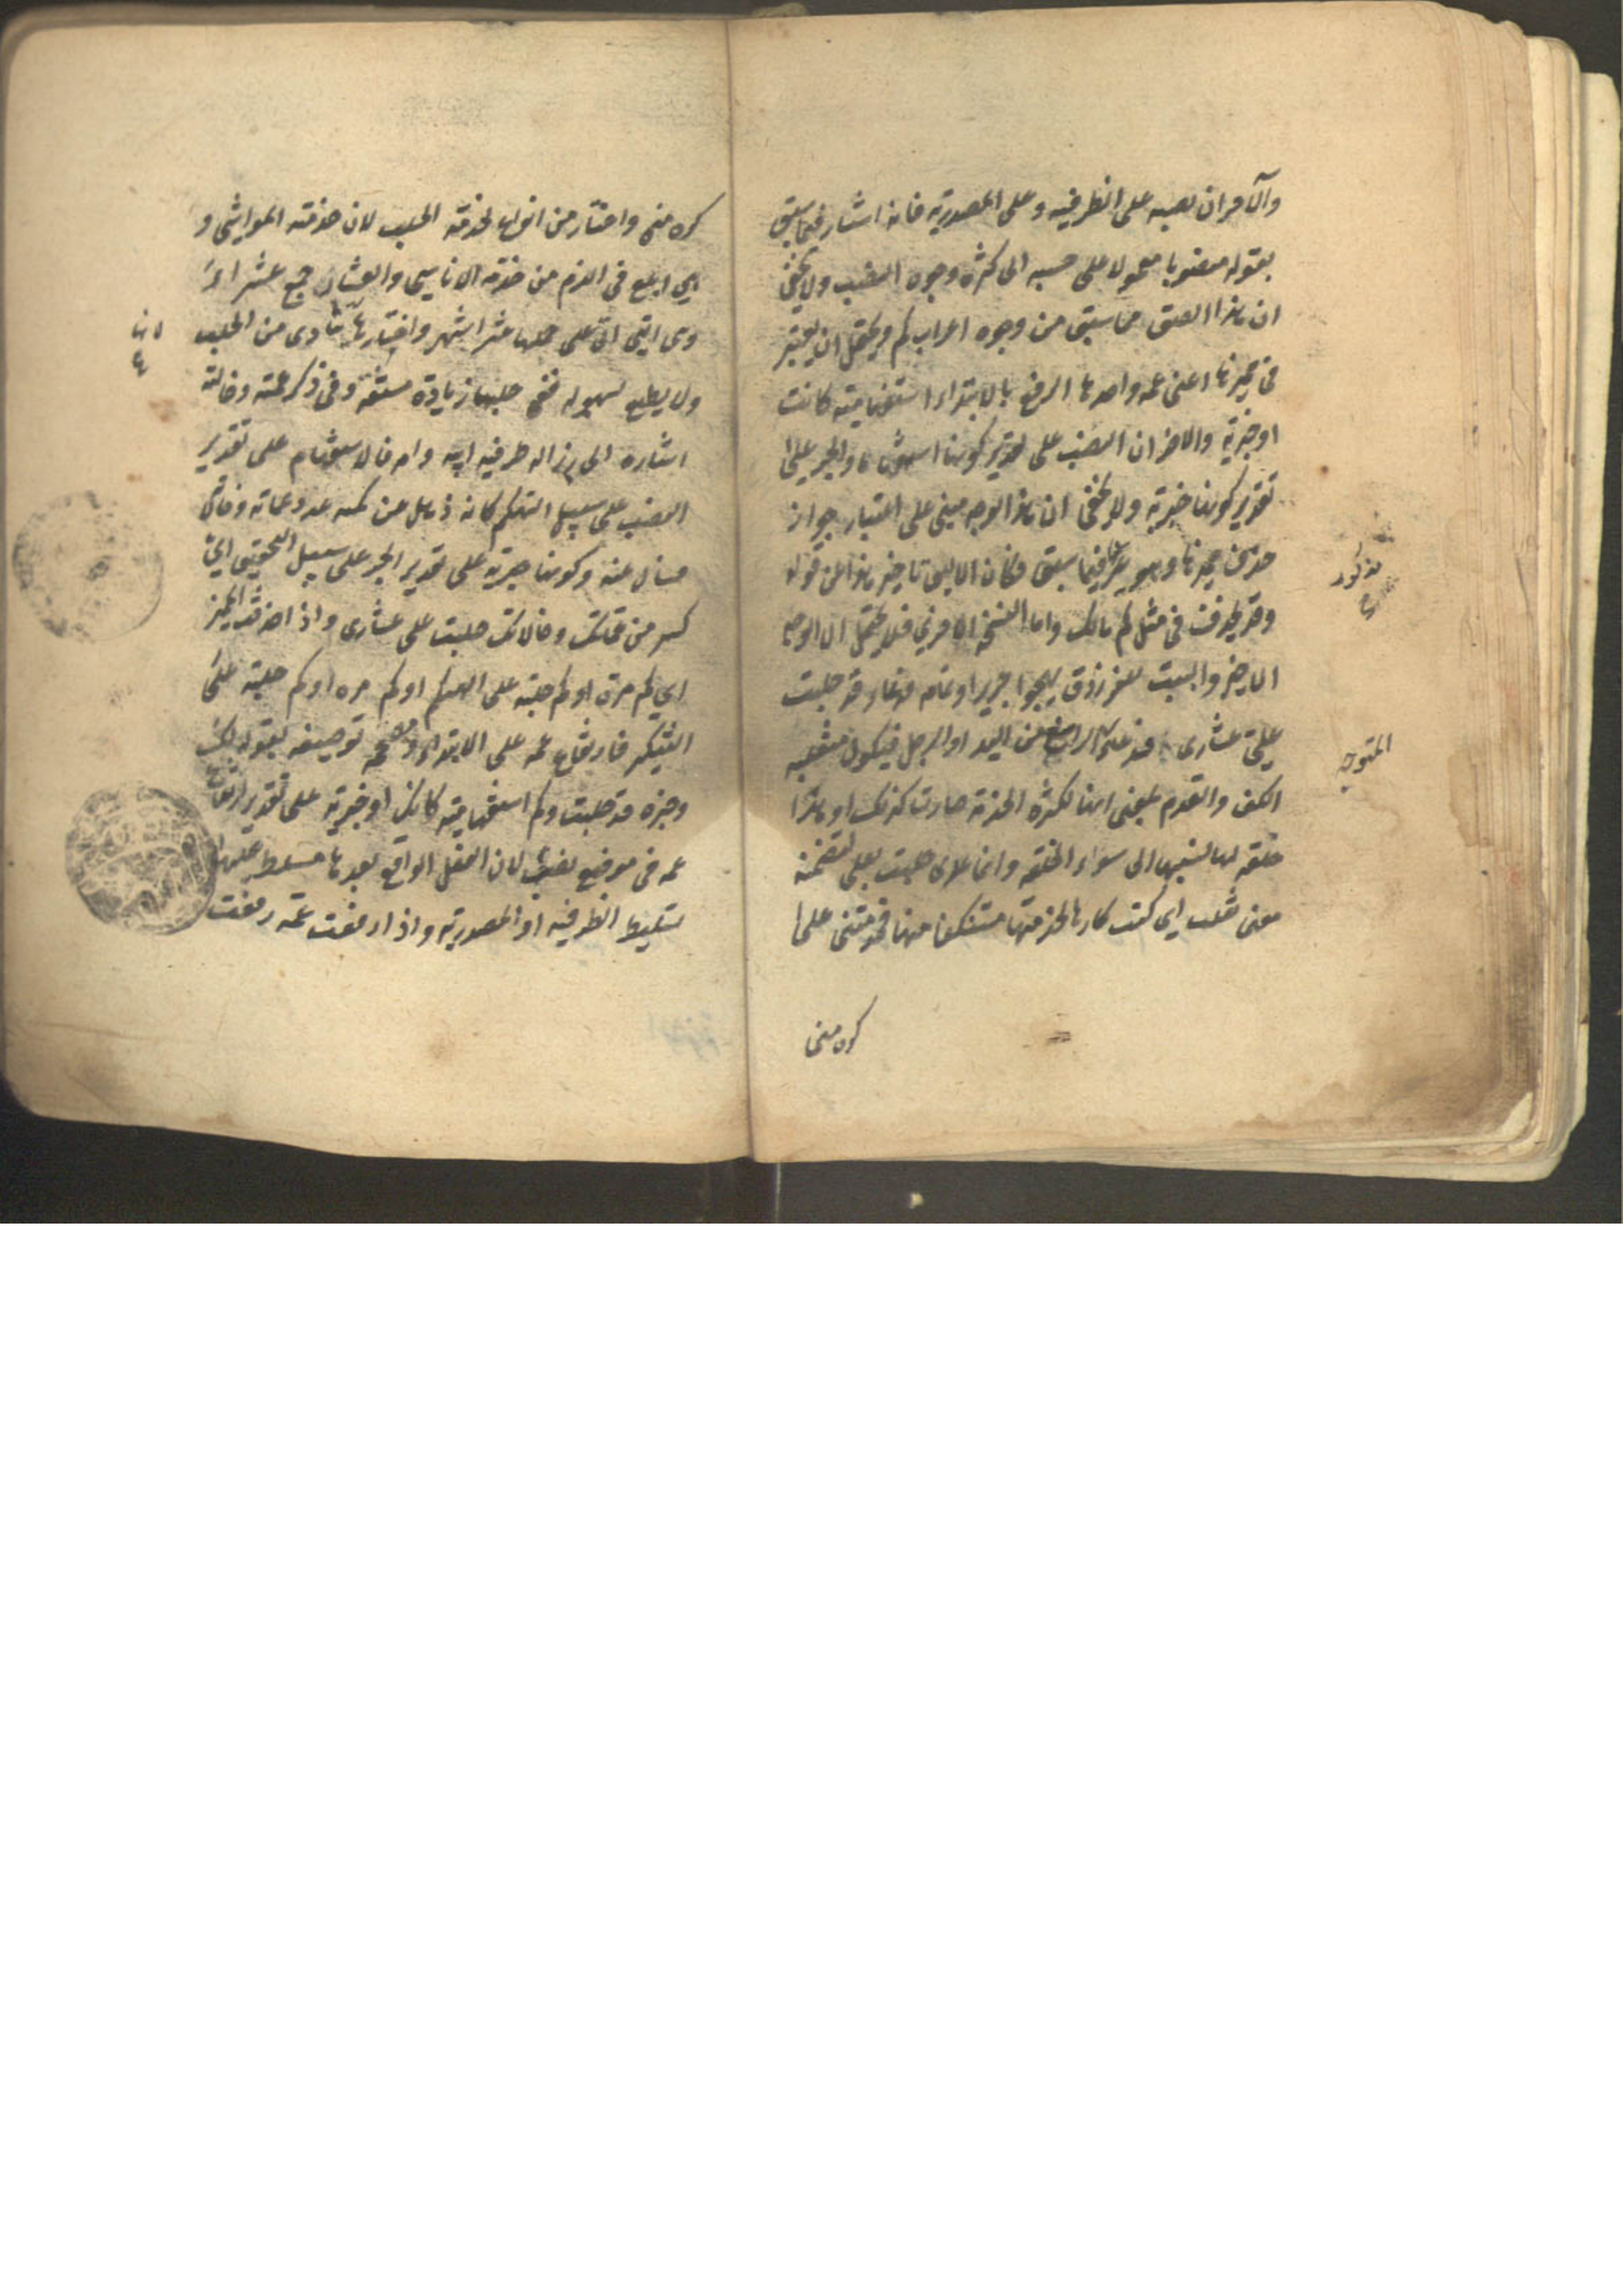 والآخران نصبه على الظرفية وعلى المصدرية فانه اشار فيما سبق
بقوله منصوبا معمولا على حسبه الى كثرة وجوه النصب ولا يخفى
ان هذا الصق بما سبق من وجوه اعراب كم ويحتمل ان يعتبر
في مميزها اعنى عمه واحدها الرفع بالابتداء استفهامية كانت
او خبرية والاخران النصب على تقدير كونها استفهامية والجر على
تقدير كونها خبرية ولا يخفى ان هذا الوجه مبنى على اعتبار جواز
حذف مميزها وهو غير مذكور فيما سبق فكان الاليق تاخير هذا عن قوله
وقد يحذف في مثل كم مالك واما النسخة الاخرى فلا يحتمل الا الوجه
الاخير والبيت للفرزدق يهجوا جريرا وتمامه فدعاء قد حلبت
على عشارى فدعاء المعوجة الرسغ من اليد او الرجل فيكون منقلبه
الكف والقدم بمعنى انها لكثرة الخدمة صارت كذلك او هذا
خلقه لها نسبها الى سوء الخلقة وانما عدى حلبت بعلى لتضمنه
معنى ثقلت اى كنت كارها لخدمتها مستنكفا منها فخدمتنى على
كره منى
مذكور
المعوجة
كره منى واختار من انواع الخدمة الحلب لان خدمته المواشى و
هي ابلغ في الذم من خدمة الاناسي والعشار جمع عشراء
وهى التى اتى على حملها عشر اشهر واختارها لانها تتأذى من الحلب
ولا يطيع بسهولة ففى حلبها زيادة مشقة وفى ذكر عمته وخالته
اشارة الى رذالة طرفيه ابيه وامه فالاستفهام على تقدير
النصب على سبيل التهكم كانه ذاهل عن كمية عدد عماته وخالاته
فسأل عنه وكونها خبرية على تقدير الجر على سبيل التحقيق اى
كثير من عماتك وخالاتك حلبت على عشارى واذا حذف المميز
اي كم مرة او كم حلبة على التهكم او كم مرة او كم حلبة على
التكثير فارتفاع عمه على الابتداء ومصححه توصيفه بقوله لك
وخبره قد حلبت وكم استفهامية كانت او خبرية على تقدير ارتفاع
عمه في موضع نصب لان الفعل الواقع بعدها مسلط عليها
تسليط الظرفية او المصدرية واذا رفعت عمه رفعت
لانها